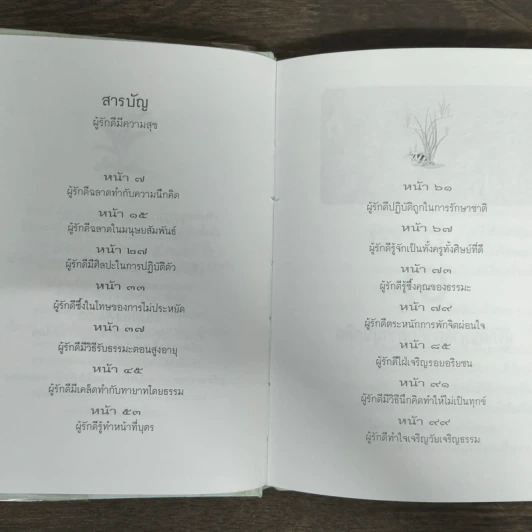 สารบัญ
ผู้รักดีมีความสุข
หน้า ๗
ผู้รักดีฉลาดทำกับความนึกคิด
หน้า ๑๕
ผู้รักดีฉลาดในมนุษยสัมพันธ์
หน้า ๒๗
ผู้รักดีมีศิลปะในการปฏิบัติตัว
หน้า ๓๓
ผู้รักดีซึ้งในโทษของการไม่ประหยัด
หน้า ๓๗
ผู้รักดีมีวิธีรับธรรมะตอนสูงอายุ
หน้า ๔๕
ผู้รักดีมีเคล็ดทำกับทายาทโดยธรรม
หน้า ๕๓
ผู้รักดีรู้ทำหน้าที่บุตร
หน้า ๖๑
ผู้รักดีปฏิบัติถูกในการรักษาชาติ
หน้า ๖๗
ผู้รักดีรู้จักเป็นทั้งครูทั้งศิษย์ที่ดี
หน้า ๗๓
ผู้รักดีรู้ซึ้งคุณของธรรมะ
หน้า ๗๙
ผู้รักดีตระหนักการพักจิตผ่อนใจ
หน้า ๘๕
ผู้รักดีใฝ่เจริญรอยอริยชน
หน้า ๙๑
ผู้รักดีมีวิธีนึกคิดทำให้ไม่เป็นทุกข์
หน้า ๙๙
ผู้รักดีทำใจเจริญวัยเจริญธรรม